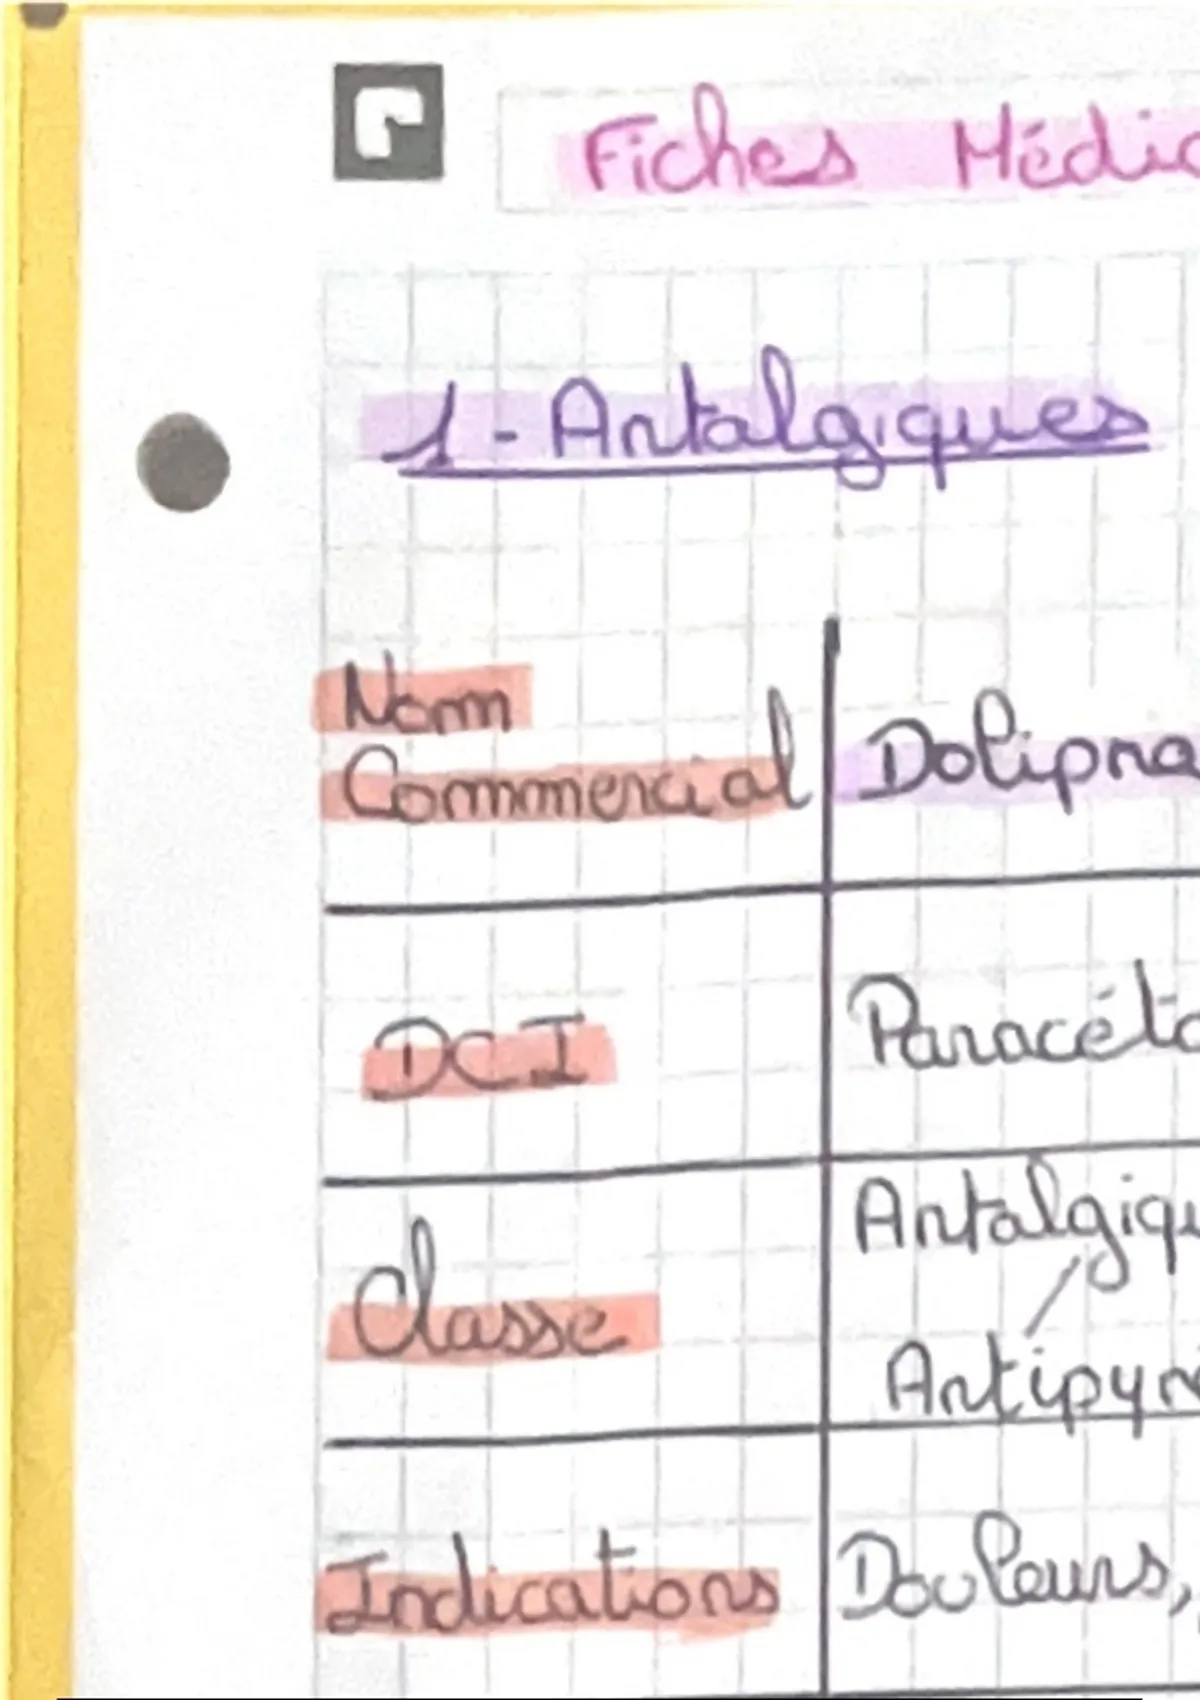 Fiches Médic
1 - Antalgiques
Nom
Commercial
Dolipra
DCI
Paracéta
Classe
Antalgiqu
Antipyré
Indications
Douleurs,